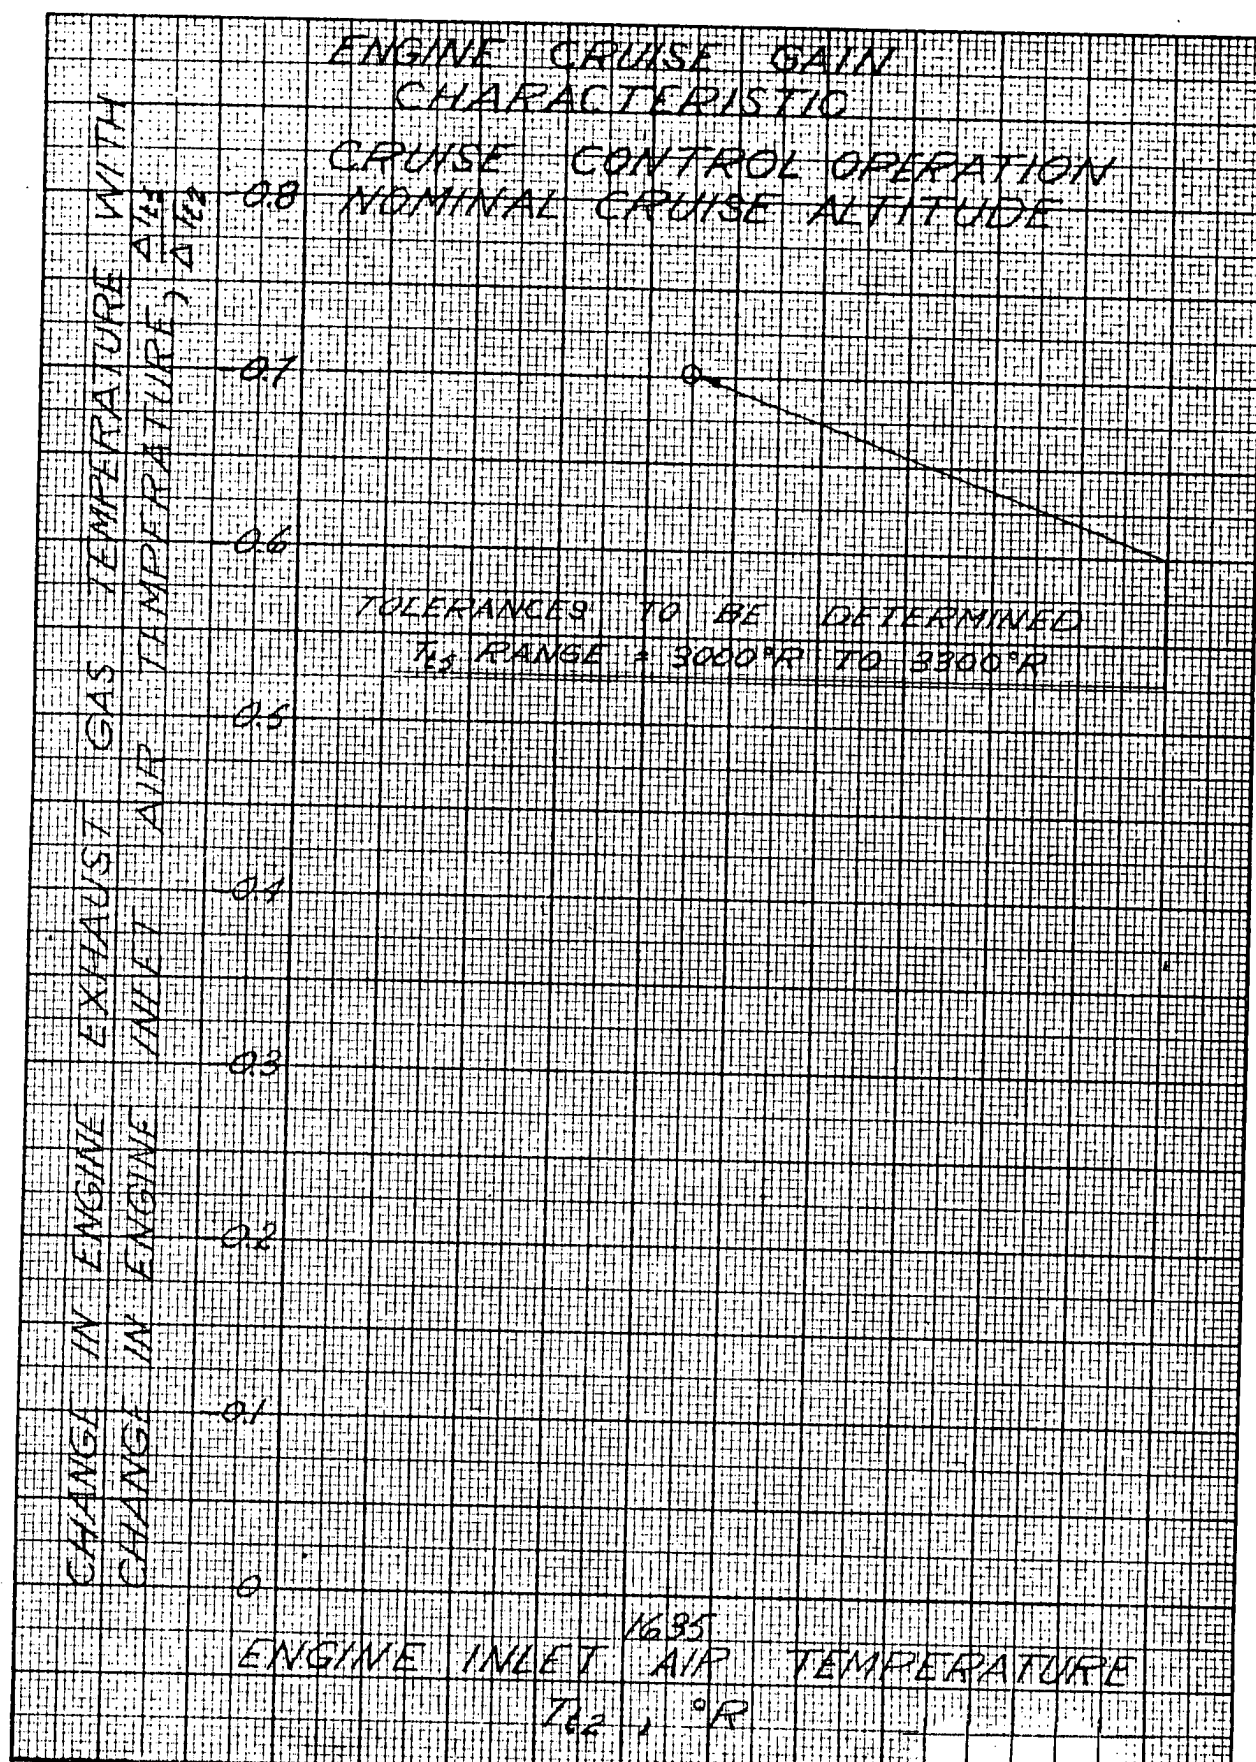 ENGINE CRUISE GAIN
CHARACTERISTIC
CRUISE CONTROL OPERATION
NOMINAL CRUISE ALTITUDE
CHANGE IN ENGINE EXHAUST GAS TEMPERATURE WITH
CHANGE IN ENGINE INLET AIR TEMPERATURE, ΔTt5
ΔTt2
0.8
0.7
0.6
TOLERANCES TO BE DETERMINED
Tt5 RANGE = 3000°R TO 3300°R
0.5
0.4
0.3
0.2
0.1
0
1635
ENGINE INLET AIR TEMPERATURE
Tt2, °R